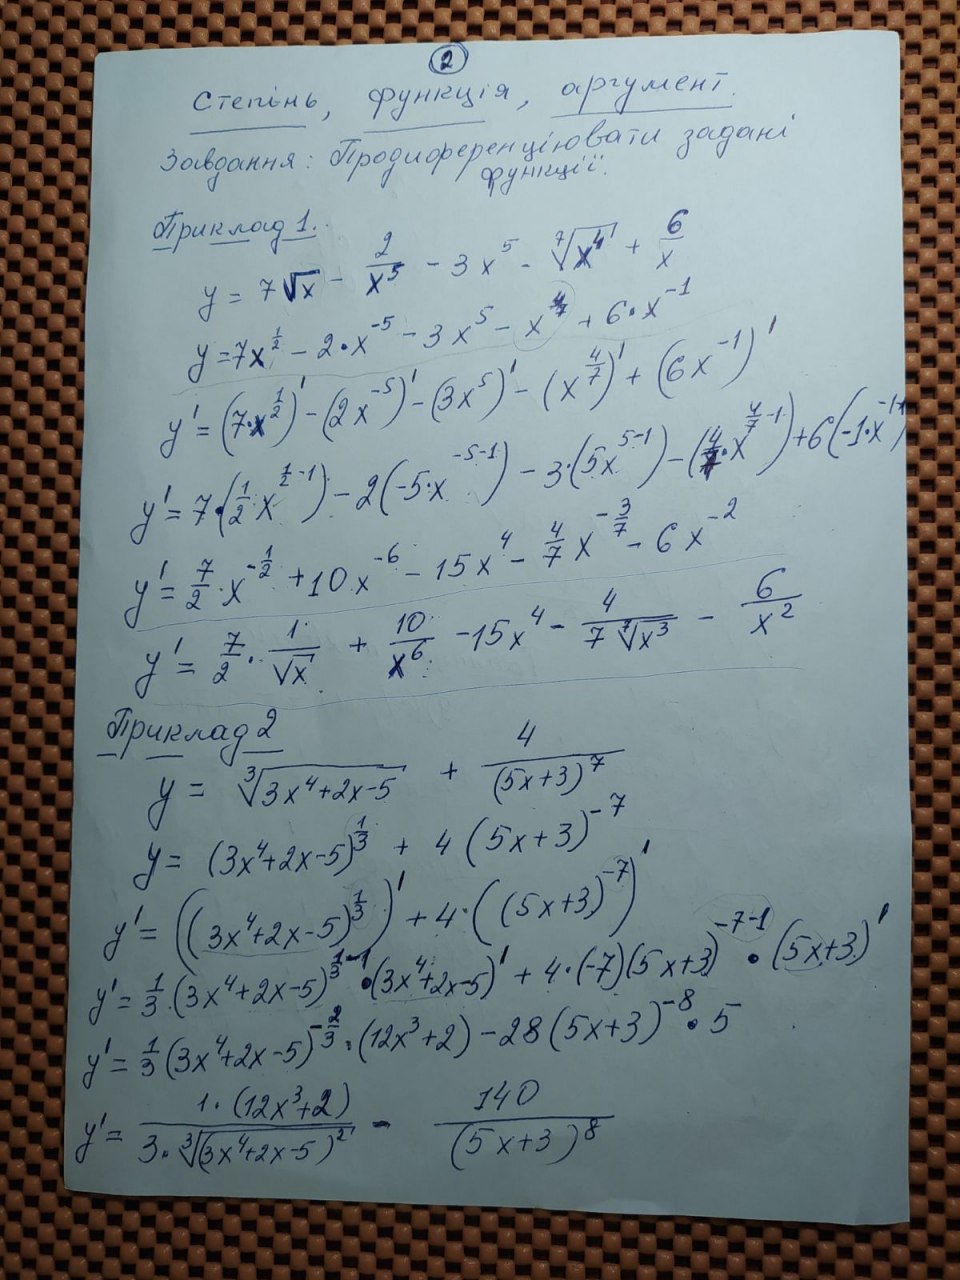 2
Степінь, функція, аргумент.
Завдання: Продиференціювати задані
функції.
Приклад 1.
y = 7√x − 2/x⁵ − 3x⁵ − ⁷√(x⁴) + 6/x
y = 7x^(1/2) − 2·x^(−5) − 3x⁵ − x^(4/7) + 6·x^(−1)
y' = (7·x^(1/2))' − (2x^(−5))' − (3x⁵)' − (x^(4/7))' + (6x^(−1))'
y' = 7·(1/2 x^(1/2−1)) − 2(−5·x^(−5−1)) − 3·(5x^(5−1)) − (4/7·x^(4/7−1)) + 6(−1·x^(−1−1))
y' = 7/2·x^(−1/2) + 10x^(−6) − 15x⁴ − 4/7 x^(−3/7) − 6x^(−2)
y' = 7/2 · 1/√x + 10/x⁶ − 15x⁴ − 4/(7 ⁷√(x³)) − 6/x²
Приклад 2
y = ³√(3x⁴+2x−5) + 4/(5x+3)⁷
y = (3x⁴+2x−5)^(1/3) + 4(5x+3)^(−7)
y' = ((3x⁴+2x−5)^(1/3))' + 4·((5x+3)^(−7))'
y' = 1/3·(3x⁴+2x−5)^(1/3−1)·(3x⁴+2x−5)' + 4·(−7)(5x+3)^(−7−1)·(5x+3)'
y' = 1/3(3x⁴+2x−5)^(−2/3)·(12x³+2) − 28(5x+3)^(−8)·5
y' = 1·(12x³+2)/(3·³√((3x⁴+2x−5)²)) − 140/(5x+3)⁸